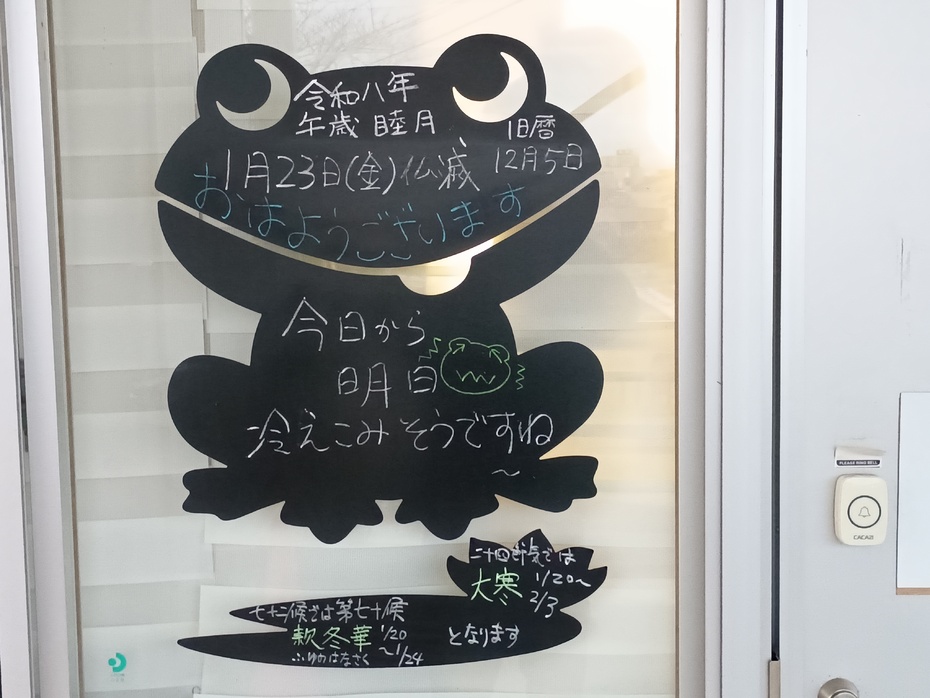 令和八年
午歳 睦月
旧暦
12月5日
1月23日(金)仏滅
おはようございます
今日から
明日
冷えこみそうですね
〜
二十四節気では
大寒 1/20〜
2/3
七十二候では第七十候
款冬華 1/20
〜1/24
ふゆのはなさく
となります
PLEASE RING BELL
CACAZI